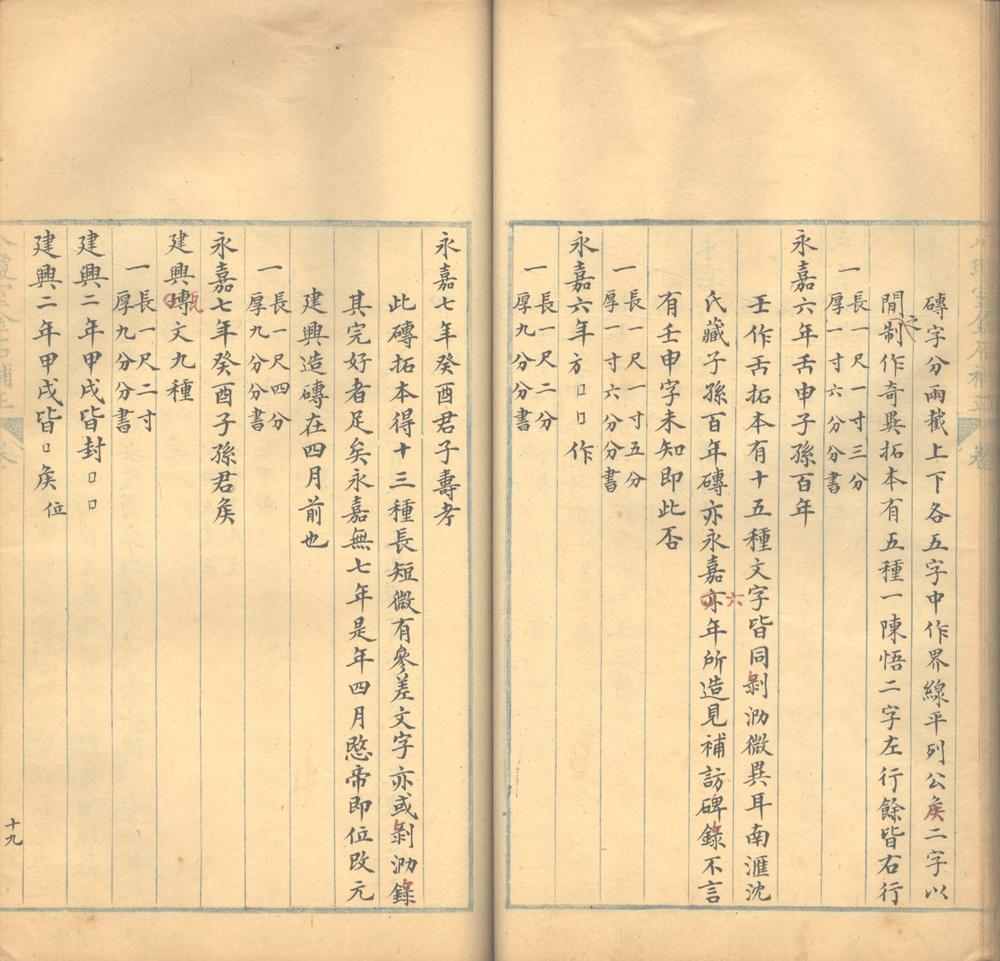 磚字分兩截上下各五字中作界線平列公矦二字以
之
間制作奇異拓本有五種一陳悟二字左行餘皆右行
一長一尺一寸三分
厚一寸六分分書
永嘉六年壬申子孫百年
壬作𡈼拓本有十五種文字皆同剝泐微異耳南滙沈
六
氏藏子孫百年磚亦永嘉亦年所造見補訪碑錄不言
有壬申字未知即此否
一長一尺一寸五分
厚一寸六分分書
永嘉六年方□□作
一長一尺二分
厚九分分書
永嘉七年癸酉君子壽考
此磚拓本得十三種長短微有參差文字亦或剝泐錄
其完好者足矣永嘉無七年是年四月愍帝即位改元
建興造磚在四月前也
一長一尺四分
厚九分分書
永嘉七年癸酉子孫君矦
建興磚文九種
一長一尺二寸
厚九分分書
建興二年甲戌皆封□□
建興二年甲戌皆□矦位
十九